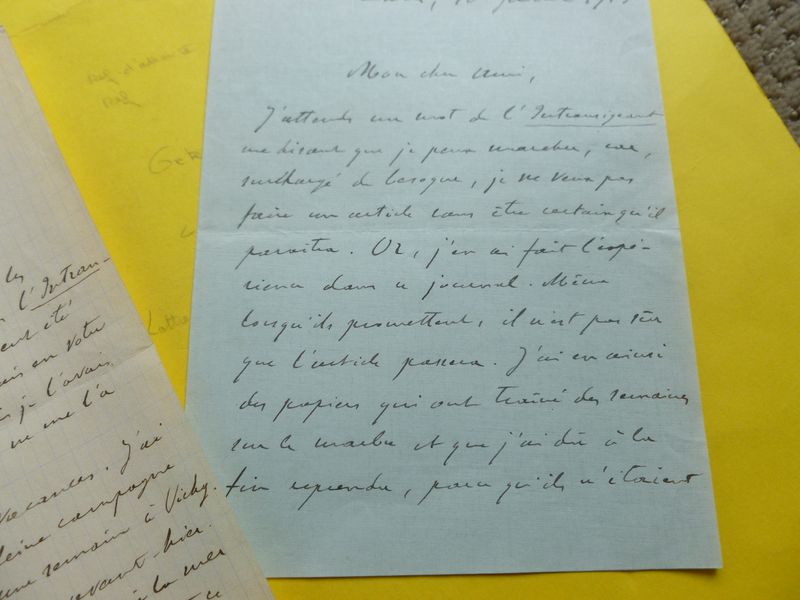 Mon cher Ami,
J'attends un mot de l'Intransigeant
me disant que je peux marcher, car,
surchargé de besogne, je ne veux pas
faire un article sans être certain qu'il
paraîtra. Or, j'en ai fait l'expé-
rience dans ce journal. Même
lorsqu'ils promettent, il n'est pas sûr
que l'article passera. J'ai eu ainsi
des papiers qui ont traîné des semaines
sur le marbre et que j'ai dû à la
fin reprendre, parce qu'ils n'étaient
les
l'Intran-
été
en votre
je l'avais
ne me l'a
vacances. J'ai
pleine campagne
une semaine à Vichy.
avant-hier.
à la mer